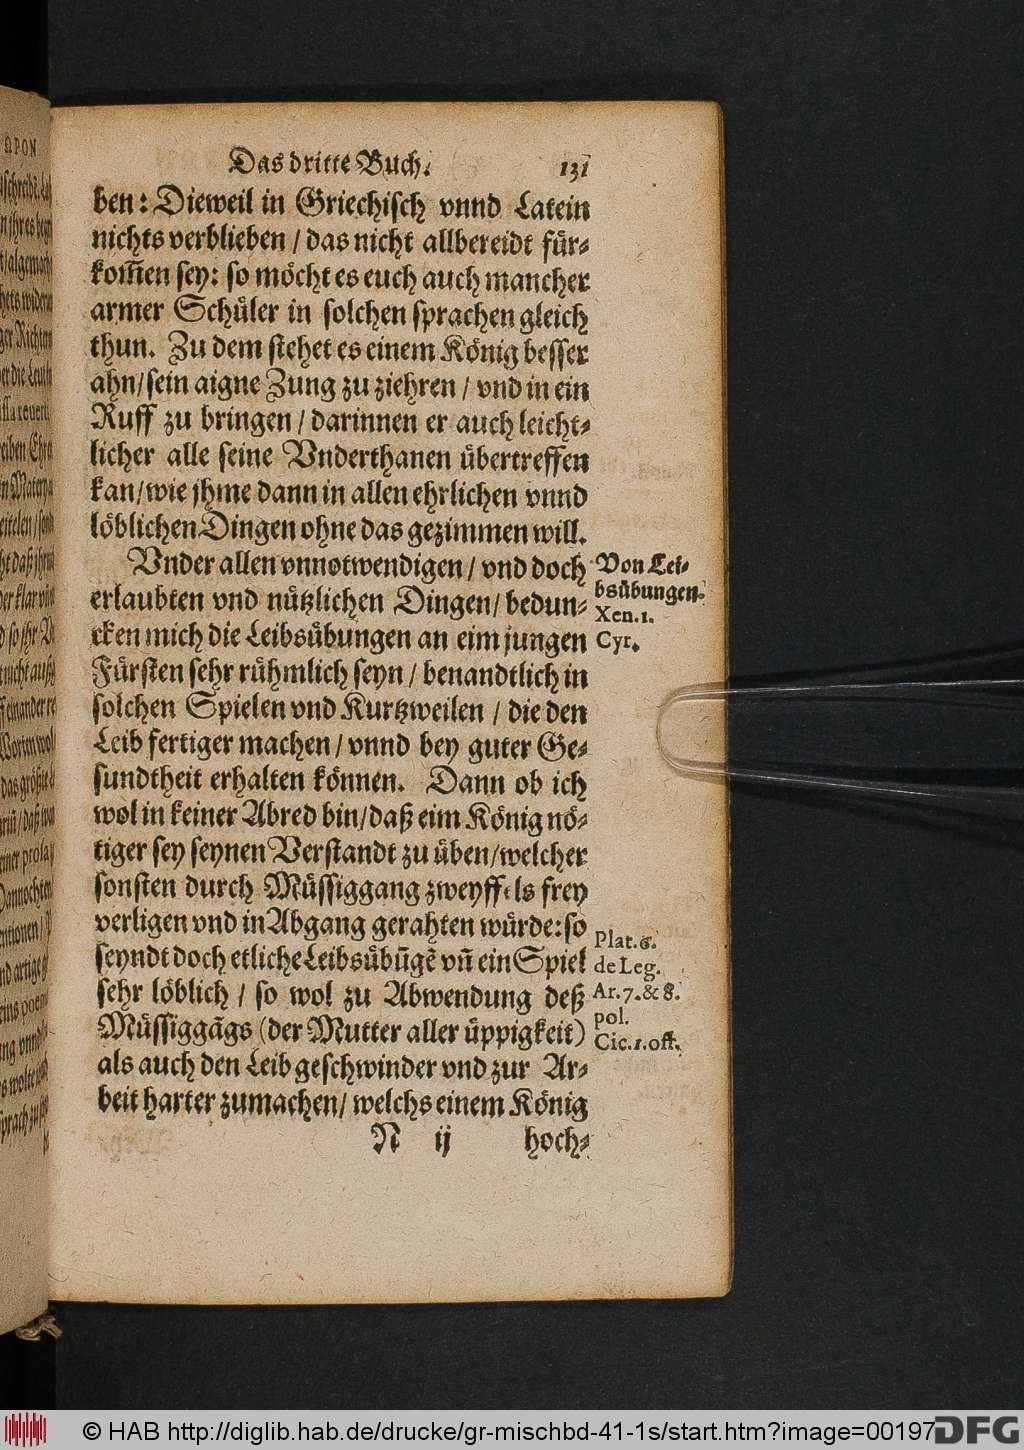 Das dritte Buch. 131
ben: Dieweil in Griechisch vnnd Latein
nichts verblieben / das nicht allbereidt für-
kom̃en sey: so möcht es euch auch mancher
armer Schüler in solchen sprachen gleich
thun. Zu dem stehet es einem König besser
ahn / sein aigne Zung zu ziehren / vnd in ein
Ruff zu bringen / darinnen er auch leicht-
licher alle seine Vnderthanen übertreffen
kan / wie jhme dann in allen ehrlichen vnnd
löblichen Dingen ohne das gezimmen will.
Vnder allen vnnotwendigen / vnd doch
erlaubten vnd nützlichen Dingen / bedun-
cken mich die Leibsübungen an eim jungen
Fürsten sehr rühmlich seyn / benandtlich in
solchen Spielen vnd Kurtzweilen / die den
Leib fertiger machen / vnnd bey guter Ge-
sundtheit erhalten können. Dann ob ich
wol in keiner Abred bin / daß eim König nö-
tiger sey seynen Verstandt zu üben / welcher
sonsten durch Müssiggang zweyffels frey
verligen vnd in Abgang gerahten würde: so
seyndt doch etliche Leibsübũgẽ vñ ein Spiel
sehr löblich / so wol zu Abwendung deß
Müssiggãgs (der Mutter aller üppigkeit)
als auch den Leib geschwinder vnd zur Ar-
beit harter zumachen / welchs einem König
N ij hoch-
Von Lei-
bsübungen.
Xen. 1.
Cyr.
Plat. 6.
de Leg.
Ar. 7. & 8.
pol.
Cic. 1. off.
© HAB http://diglib.hab.de/drucke/gr-mischbd-41-1s/start.htm?image=00197
DFG